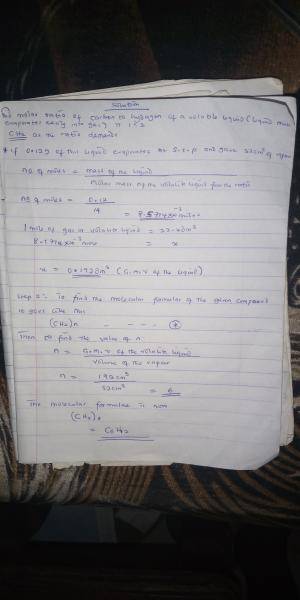 Solution
The molar ratio of carbon to hydrogen of a volatile liquid (liquid that
evaporates easily into gas) is 1:2
CH2 as the ratio demands
* if 0.12g of this liquid evaporates at S.t.p and gave 32cm3 of vapour
no of moles = mass of the liquid
Molar mass of the volatile liquid from the ratio
no of moles = 0.12
14
= 8.5714x10-3 moles
1 mole of gas in volatile liquid = 22.4dm3
8.5714x10-3 mole = x
x = 0.192dm3 (G.m.v of the liquid)
Step 2: To find the molecular formular of the given compound
is give like this
(CH2)n - - - - *
Then to find the value of n
n = G.m.v of the volatile liquid
volume of the vapour
n = 192cm3
32cm3
= 6
The molecular formular is now
(CH2)6
= C6H12